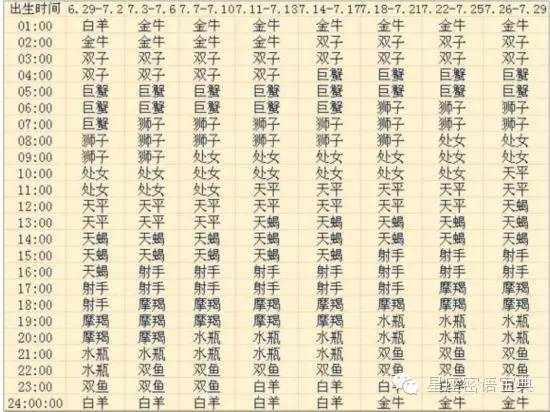 出生时间 6.29-7.2 7.3-7.6 7.7-7.10 7.11-7.13 7.14-7.17 7.18-7.21 7.22-7.25 7.26-7.29
01:00 白羊 金牛 金牛 金牛 金牛 金牛 金牛 金牛
02:00 金牛 金牛 金牛 金牛 双子 双子 双子 双子
03:00 双子 双子 双子 双子 双子 双子 双子 双子
04:00 双子 双子 双子 双子 巨蟹 巨蟹 巨蟹 巨蟹
05:00 巨蟹 巨蟹 巨蟹 巨蟹 巨蟹 巨蟹 巨蟹 巨蟹
06:00 巨蟹 巨蟹 巨蟹 巨蟹 巨蟹 狮子 狮子 狮子
07:00 巨蟹 狮子 狮子 狮子 狮子 狮子 狮子 狮子
08:00 狮子 狮子 狮子 狮子 狮子 狮子 处女 处女
09:00 狮子 狮子 处女 处女 处女 处女 处女 处女
10:00 处女 处女 处女 处女 处女 处女 处女 天平
11:00 处女 处女 处女 天平 天平 天平 天平 天平
12:00 天平 天平 天平 天平 天平 天平 天平 天蝎
13:00 天平 天平 天平 天蝎 天蝎 天蝎 天蝎 天蝎
14:00 天蝎 天蝎 天蝎 天蝎 天蝎 天蝎 天蝎 天蝎
15:00 天蝎 天蝎 天蝎 天蝎 天蝎 射手 射手 射手
16:00 天蝎 射手 射手 射手 射手 射手 射手 射手
17:00 射手 射手 射手 射手 射手 射手 摩羯 摩羯
18:00 射手 摩羯 摩羯 摩羯 摩羯 摩羯 摩羯 摩羯
19:00 摩羯 摩羯 摩羯 摩羯 摩羯 水瓶 水瓶 水瓶
20:00 摩羯 摩羯 水瓶 水瓶 水瓶 水瓶 水瓶 水瓶
21:00 水瓶 水瓶 水瓶 水瓶 水瓶 双鱼 双鱼 双鱼
22:00 水瓶 双鱼 双鱼 双鱼 双鱼 双鱼 双鱼 双鱼
23:00 双鱼 双鱼 双鱼 白羊 白羊
星座密语宝典
24:00:00 白羊 白羊 白羊 白羊 白羊 金牛 金牛 金牛